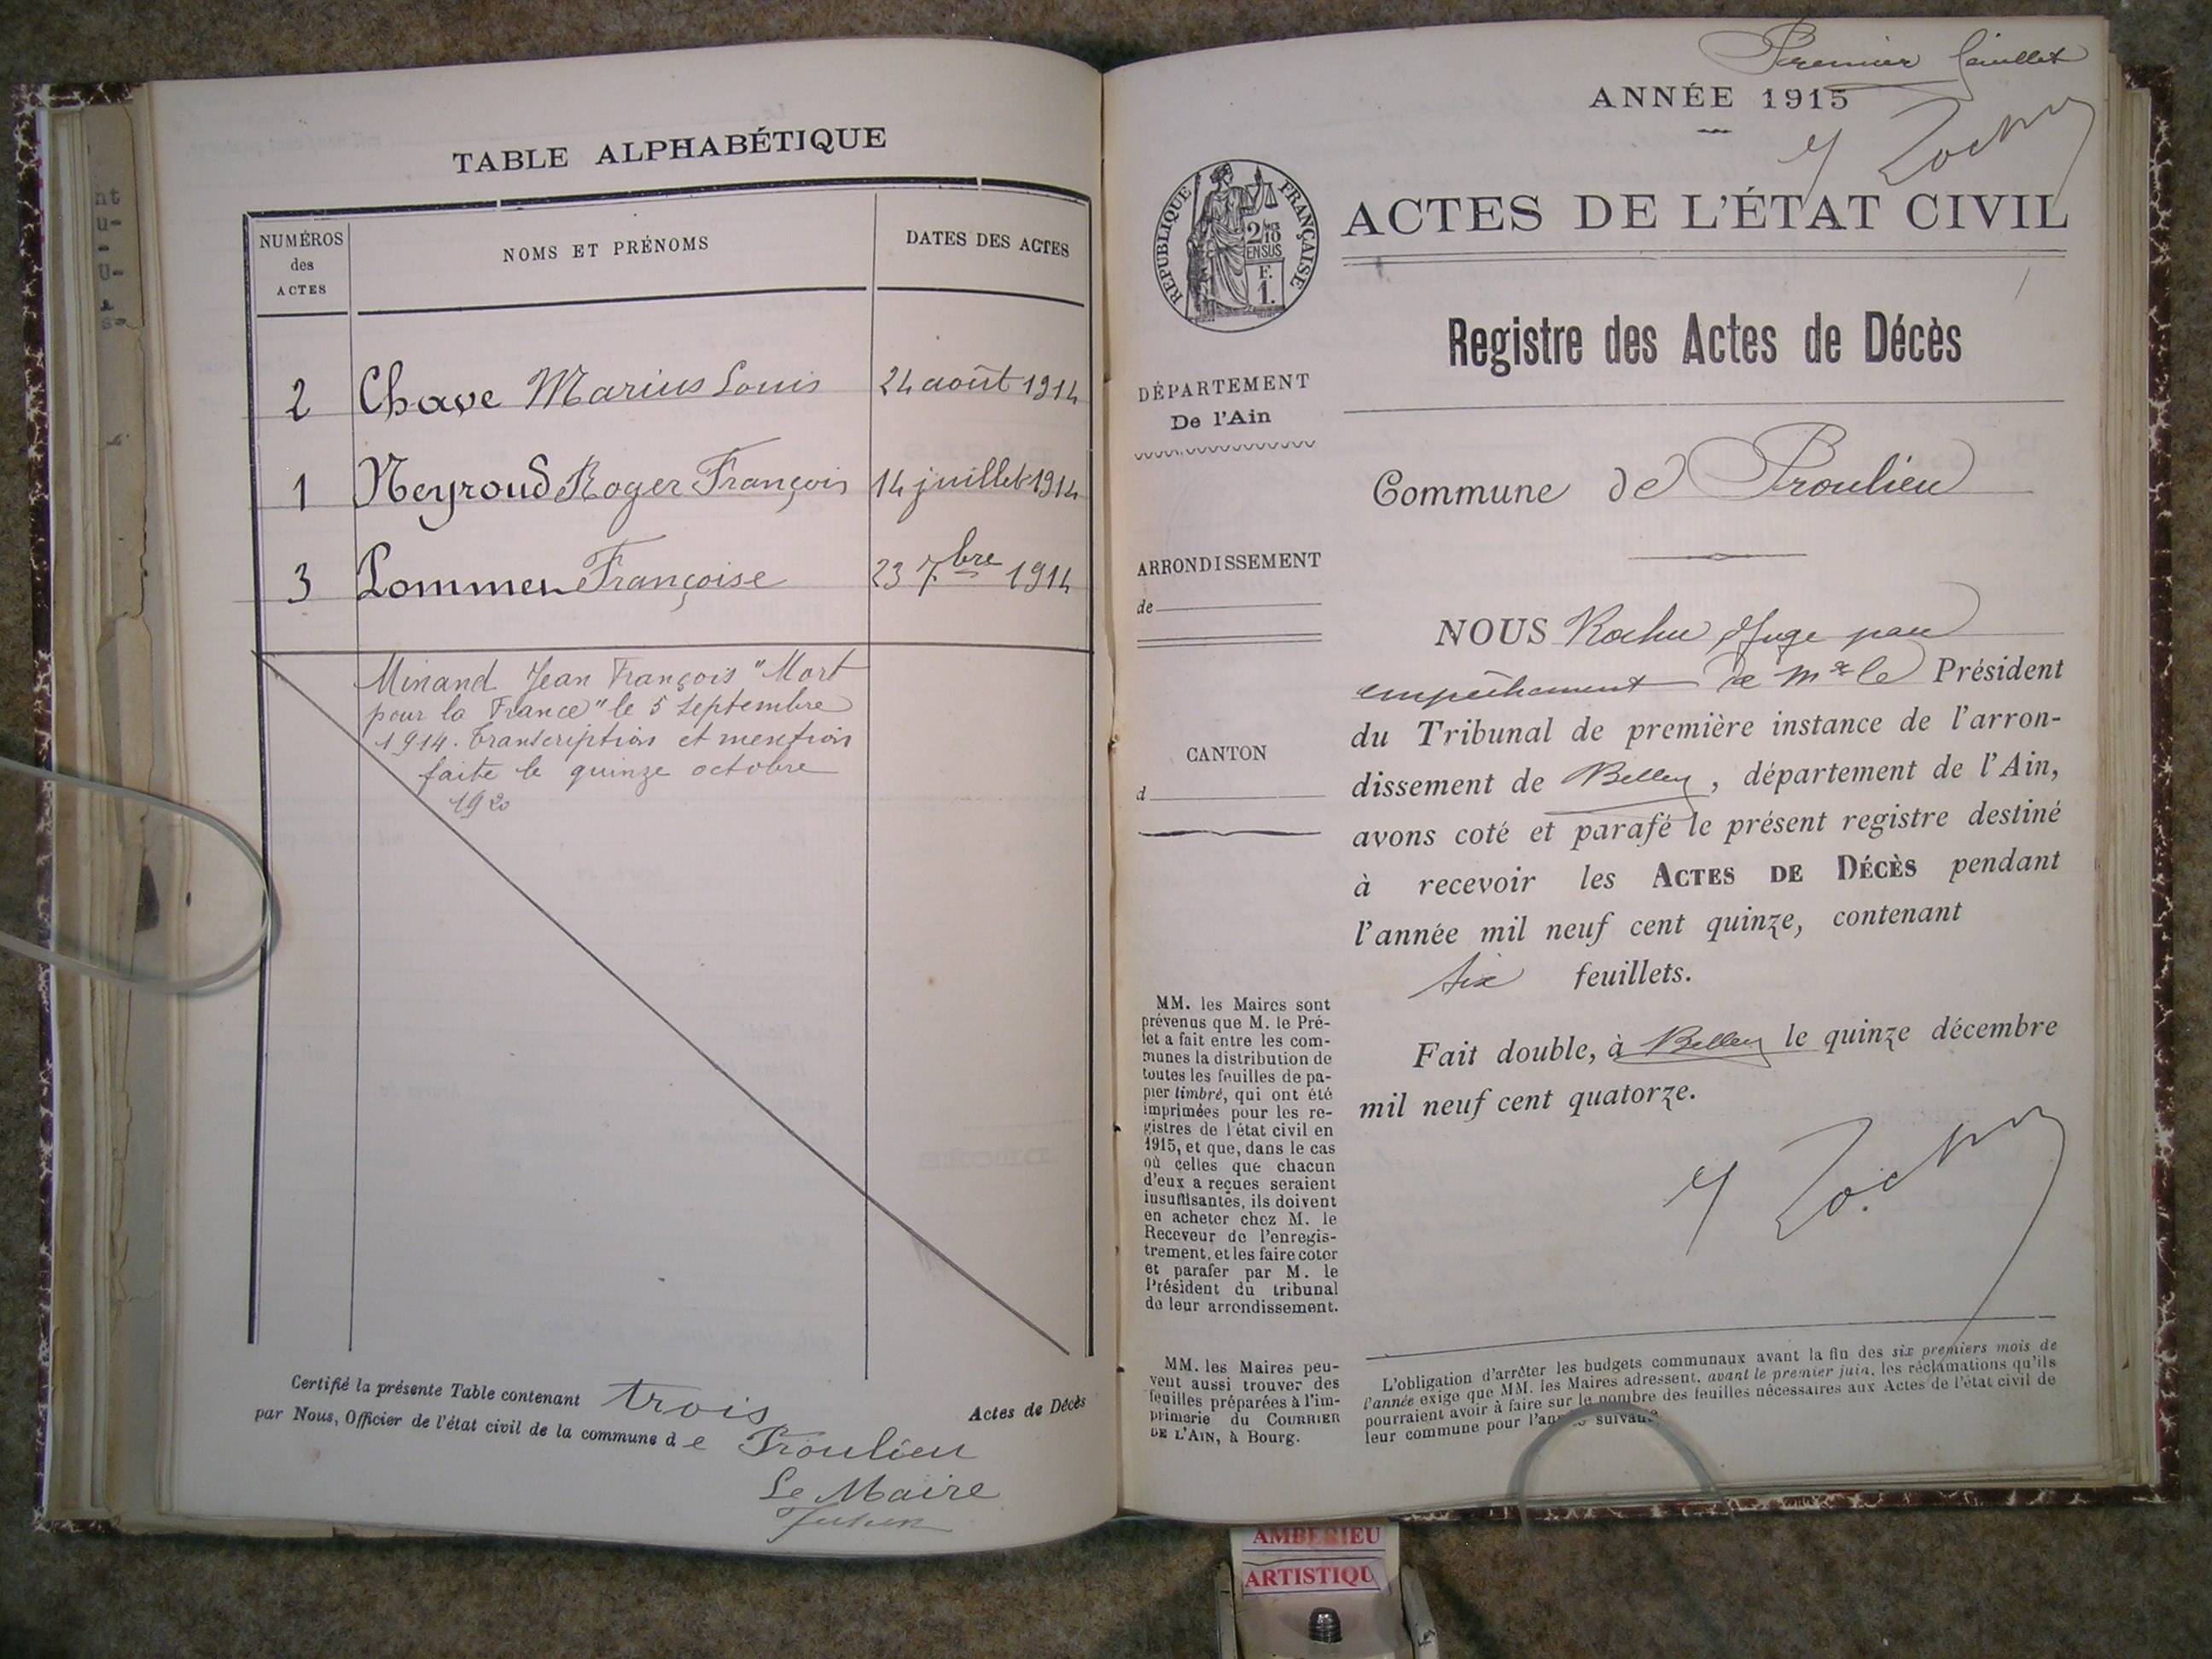 TABLE ALPHABÉTIQUE
NUMÉROS
des
ACTES
NOMS ET PRÉNOMS
DATES DES ACTES
2 Chave Marius Louis 24 août 1914
1 Neyroud Roger François 14 juillet 1914
3 Pommer Françoise 23 7bre 1914
Minand Jean François "Mort
pour la France" le 5 Septembre
1914. Transcription et mention
faite le quinze octobre
1920
Certifié la présente Table contenant trois Actes de Décès
par Nous, Officier de l'état civil de la commune de Proulieu
Le Maire
Premier feuillet
ANNÉE 1915
RÉPUBLIQUE FRANÇAISE
2/10
EN SUS
F.
1.
ACTES DE L'ÉTAT CIVIL
Registre des Actes de Décès
DÉPARTEMENT
De l'Ain
Commune de Proulieu
ARRONDISSEMENT
de
CANTON
d
NOUS Rochu Juge par
empêchement de Mr le Président
du Tribunal de première instance de l'arron-
dissement de Belley, département de l'Ain,
avons coté et parafé le présent registre destiné
à recevoir les ACTES DE DÉCÈS pendant
l'année mil neuf cent quinze, contenant
six feuillets.
Fait double, à Belley le quinze décembre
mil neuf cent quatorze.
MM. les Maires sont
prévenus que M. le Pré-
fet a fait entre les com-
munes la distribution de
toutes les feuilles de pa-
pier timbré, qui ont été
imprimées pour les re-
gistres de l'état civil en
1915, et que, dans le cas
où celles que chacun
d'eux a reçues seraient
insuffisantes, ils doivent
en acheter chez M. le
Receveur de l'enregis-
trement, et les faire coter
et parafer par M. le
Président du tribunal
de leur arrondissement.
MM. les Maires peu-
vent aussi trouver des
feuilles préparées à l'im-
primerie du COURRIER
DE L'AIN, à Bourg.
L'obligation d'arrêter les budgets communaux avant la fin des six premiers mois de
l'année exige que MM. les Maires adressent, avant le premier juin, les réclamations qu'ils
pourraient avoir à faire sur le nombre des feuilles nécessaires aux Actes de l'état civil de
leur commune pour l'année suivante
AMBERIEU
ARTISTIQU